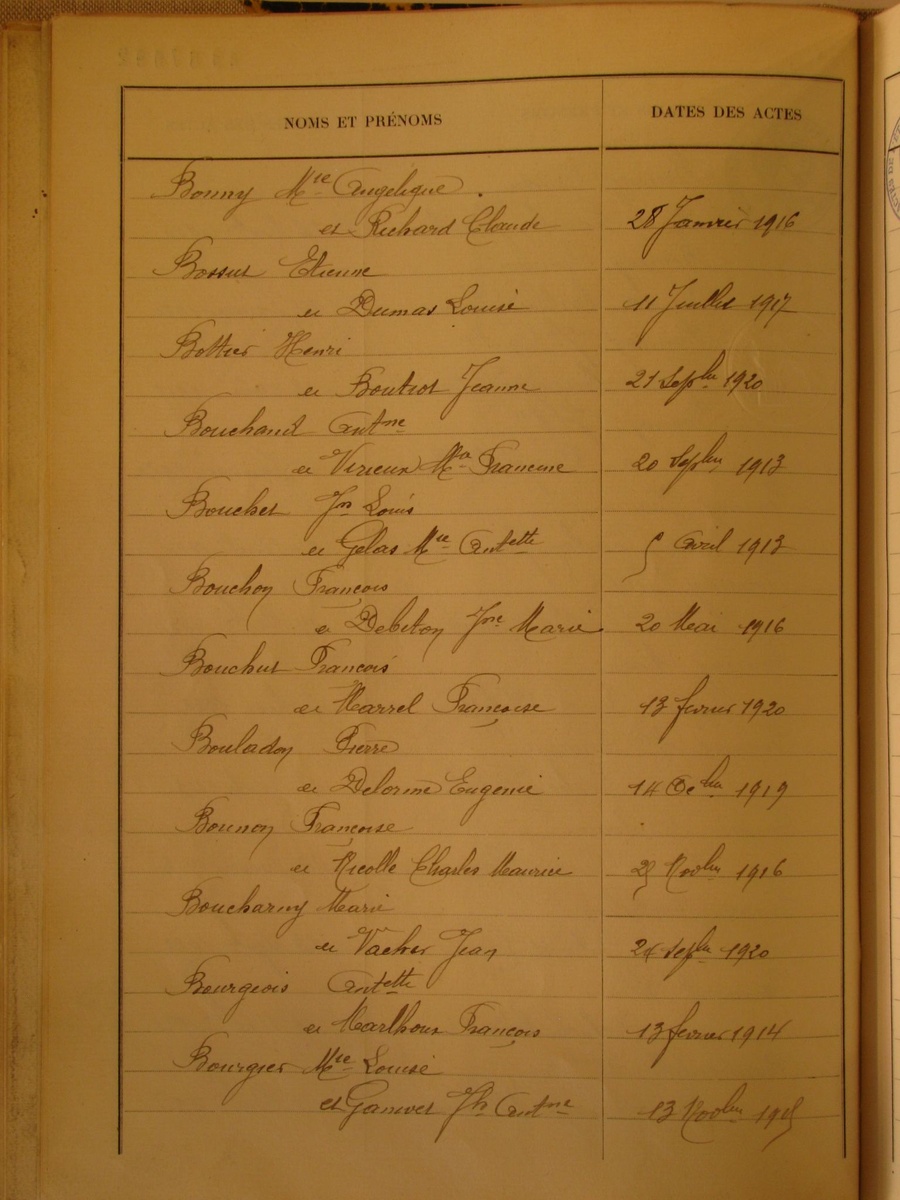 NOMS ET PRÉNOMS DATES DES ACTES
Bonny Mie Angélique
et Richard Claude 28 Janvier 1916
Bossut Etienne
et Dumas Louise 11 Juillet 1917
Bottier Henri
et Boutrot Jeanne 21 Sepbre 1920
Bouchand Antne
et Virieux Mia Francine 20 Sepbre 1913
Bouchet Jn Louis
et Gelas Mie Antette 5 Avril 1913
Bouchon François
et Debiton Jne Marie 20 Mai 1916
Bouchut François
et Marrel Françoise 13 fevrier 1920
Bouladon Pierre
et Delorme Eugenie 14 Ocbre 1919
Bounon Françoise
et Nicolle Charles Maurice 25 Novbre 1916
Boucharny Marie
et Vacher Jean Sepbre 1920
Bourgeois Antette
et Marlhoux François 13 fevrier 1914
Bourgier Mie Louise
et Ganivet Jh Antne 13 Novbre